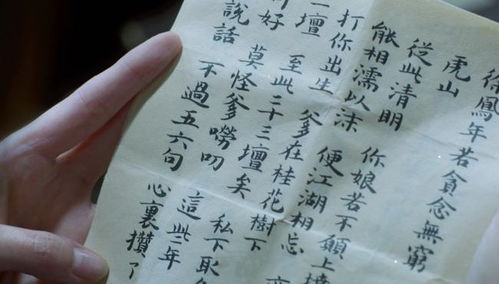 徐鳳年若貪念無窮
虎山
從此清明 你娘若不願上
能相濡以沫 便江湖相忘
打你出生 爹在桂花樹下
一壇 至此三十三壇矣 私下取
好 莫怪爹嘮叨 這些年
說話 不過五六句 心裏攢了